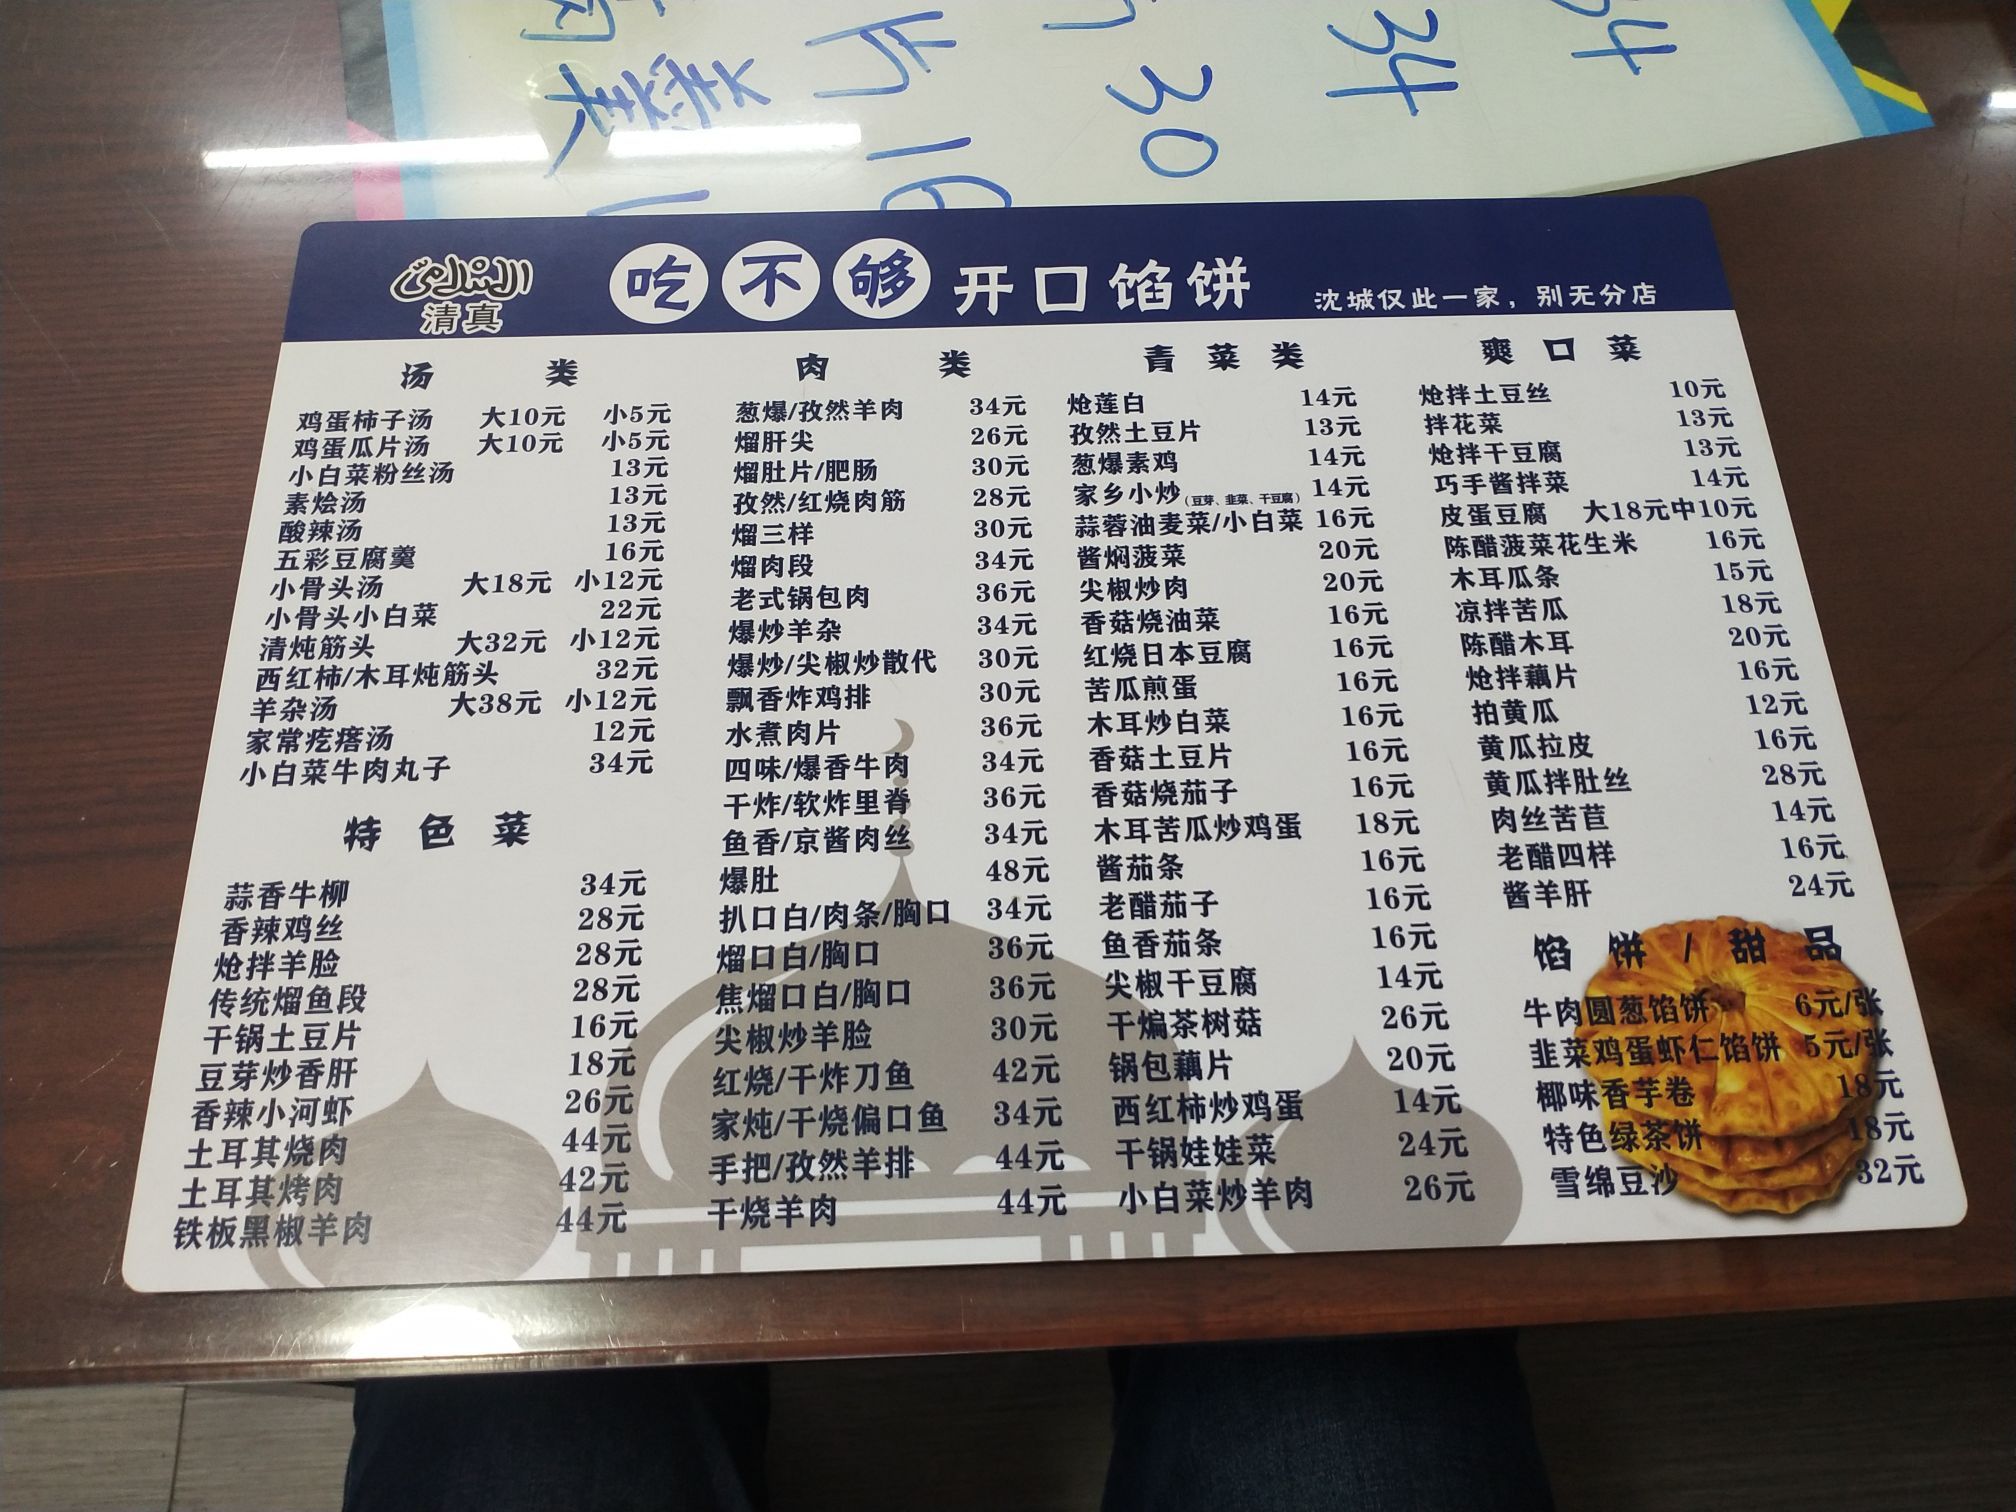 34
34
30
片 16
السلامي
清真
吃不够开口馅饼
沈城仅此一家，别无分店
汤类
鸡蛋柿子汤 大10元 小5元
鸡蛋瓜片汤 大10元 小5元
小白菜粉丝汤 13元
素烩汤 13元
酸辣汤 13元
五彩豆腐羹 16元
小骨头汤 大18元 小12元
小骨头小白菜 22元
清炖筋头 大32元 小12元
西红柿/木耳炖筋头 32元
羊杂汤 大38元 小12元
家常疙瘩汤 12元
小白菜牛肉丸子 34元
特色菜
蒜香牛柳 34元
香辣鸡丝 28元
炝拌羊脸 28元
传统熘鱼段 28元
干锅土豆片 16元
豆芽炒香肝 18元
香辣小河虾 26元
土耳其烧肉 44元
土耳其烤肉 42元
铁板黑椒羊肉 44元
肉类
葱爆/孜然羊肉 34元
熘肝尖 26元
熘肚片/肥肠 30元
孜然/红烧肉筋 28元
熘三样 30元
熘肉段 34元
老式锅包肉 36元
爆炒羊杂 34元
爆炒/尖椒炒散代 30元
飘香炸鸡排 30元
水煮肉片 36元
四味/爆香牛肉 34元
干炸/软炸里脊 36元
鱼香/京酱肉丝 34元
爆肚 48元
扒口白/肉条/胸口 34元
熘口白/胸口 36元
焦熘口白/胸口 36元
尖椒炒羊脸 30元
红烧/干炸刀鱼 42元
家炖/干烧偏口鱼 34元
手把/孜然羊排 44元
干烧羊肉 44元
青菜类
炝莲白 14元
孜然土豆片 13元
葱爆素鸡 14元
家乡小炒(豆芽、韭菜、干豆腐) 14元
蒜蓉油麦菜/小白菜 16元
酱焖菠菜 20元
尖椒炒肉 20元
香菇烧油菜 16元
红烧日本豆腐 16元
苦瓜煎蛋 16元
木耳炒白菜 16元
香菇土豆片 16元
香菇烧茄子 16元
木耳苦瓜炒鸡蛋 18元
酱茄条 16元
老醋茄子 16元
鱼香茄条 16元
尖椒干豆腐 14元
干煸茶树菇 26元
锅包藕片 20元
西红柿炒鸡蛋 14元
干锅娃娃菜 24元
小白菜炒羊肉 26元
爽口菜
炝拌土豆丝 10元
拌花菜 13元
炝拌干豆腐 13元
巧手酱拌菜 14元
皮蛋豆腐 大18元中10元
陈醋菠菜花生米 16元
木耳瓜条 15元
凉拌苦瓜 18元
陈醋木耳 20元
炝拌藕片 16元
拍黄瓜 12元
黄瓜拉皮 16元
黄瓜拌肚丝 28元
肉丝苦苣 14元
老醋四样 16元
酱羊肝 24元
馅饼/甜品
牛肉圆葱馅饼 6元/张
韭菜鸡蛋虾仁馅饼 5元/张
椰味香芋卷 18元
特色绿茶饼 18元
雪绵豆沙 32元